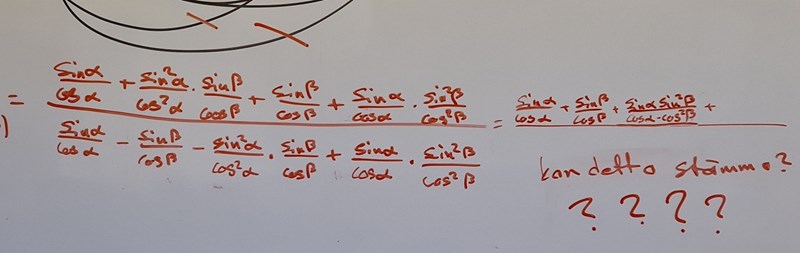 = (sinα/cosα + sin²α/cos²α · sinβ/cosβ + sinβ/cosβ + sinα/cosα · sin²β/cos²β) / (sinα/cosα - sinβ/cosβ - sin²α/cos²α · sinβ/cosβ + sinα/cosα · sin²β/cos²β) = sinα/cosα + sinβ/cosβ + sinα sin²β/cosα-cos²β +
kan detta stämma?
? ? ? ?